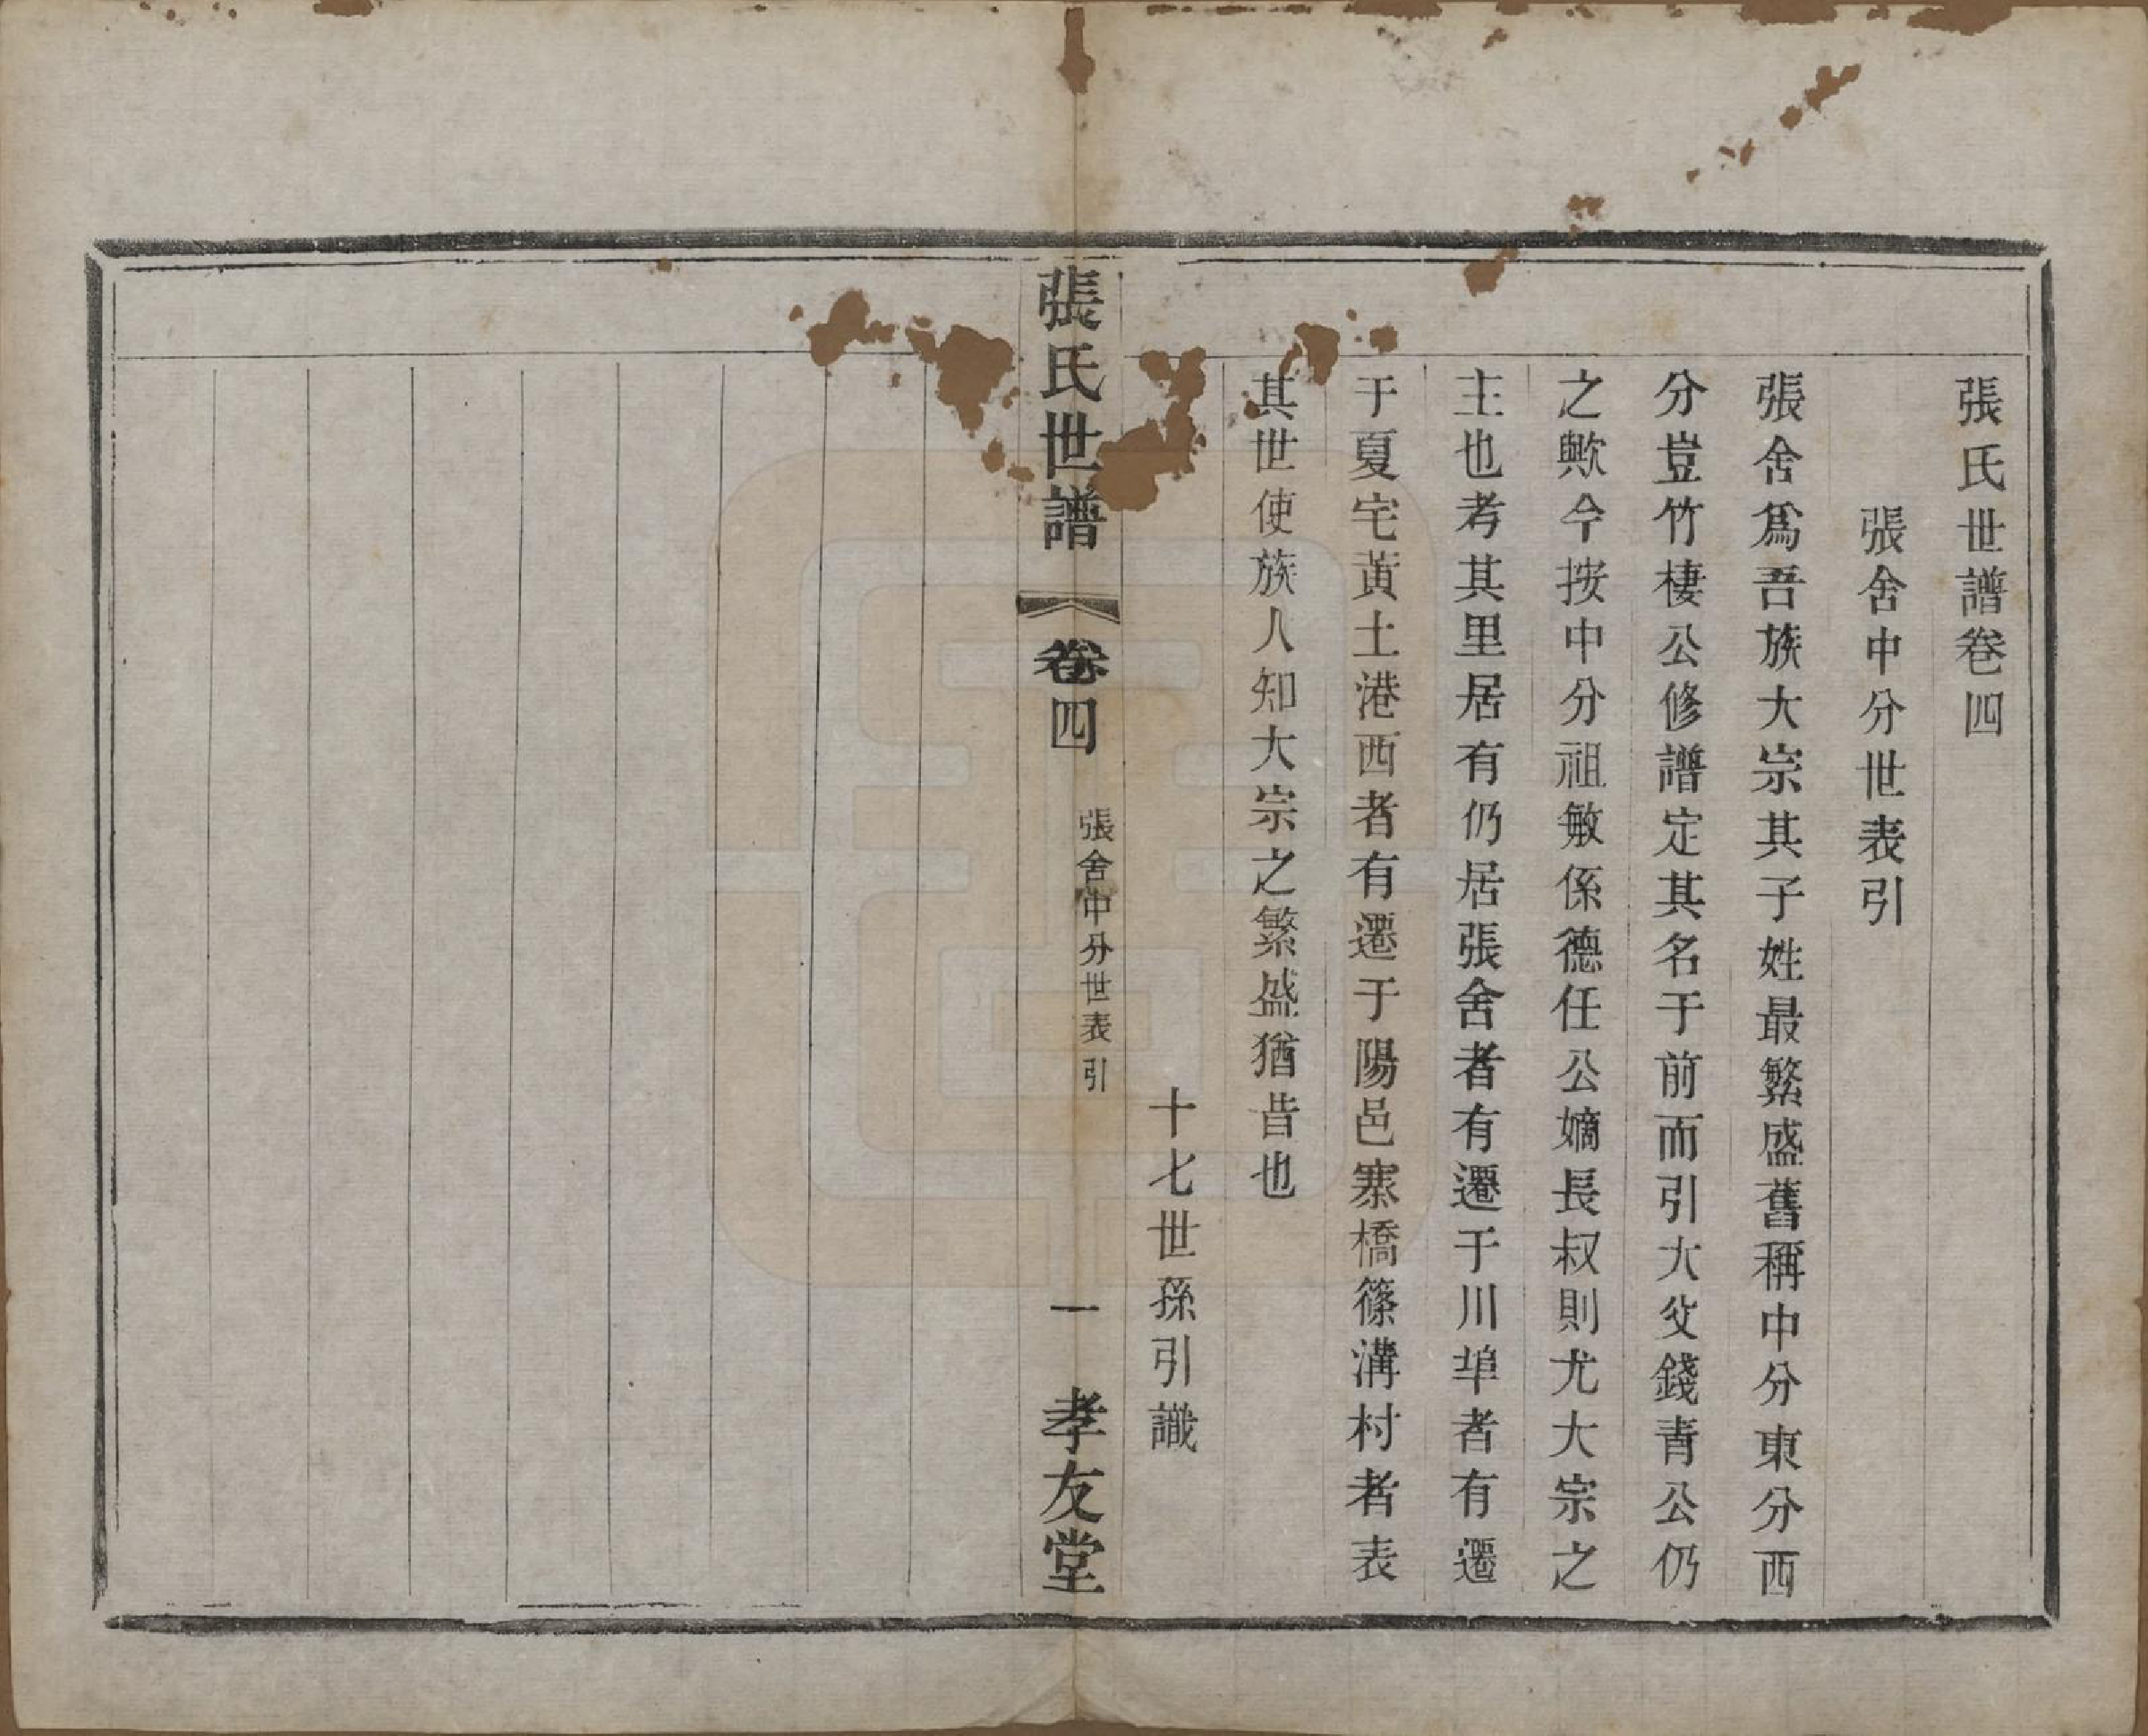 張氏世譜卷四
張舍中分世表引
張舍爲吾族大宗其子姓最繁盛舊稱中分東分西
分豈竹棲公修譜定其名于前而引大父錢青公仍
之歟今按中分祖敏係德任公嫡長叔則尤大宗之
主也考其里居有仍居張舍者有遷于川埠者有遷
于夏宅黃土港西者有遷于陽邑寨橋篠溝村者表
其世使族人知大宗之繁盛猶昔也
十七世孫引識
張氏世譜
卷四
張舍中分世表引
一
孝友堂